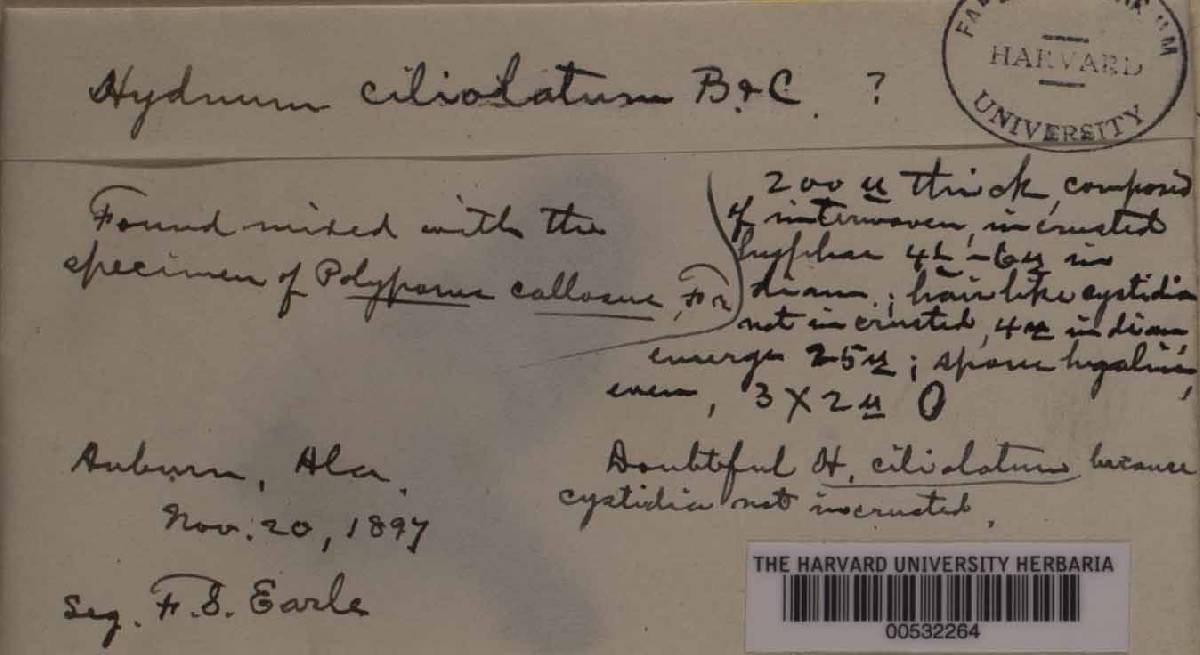 Hydnum ciliolatum B & C. ?
HARVARD
UNIVERSITY
Found mixed with the
specimen of Polyporus callosus, Fr
200 µ thick, composed
of interwoven, incrusted
hyphae 4½-6µ in
diam.; hairlike cystidia
not incrusted, 4µ in diam,
emerge 25µ; spores hyaline,
even, 3 X 2µ
Auburn, Ala.
Nov. 20, 1897
Leg. F. S. Earle
Doubtful H. ciliolatum because
cystidia not incrusted.
THE HARVARD UNIVERSITY HERBARIA
00532264